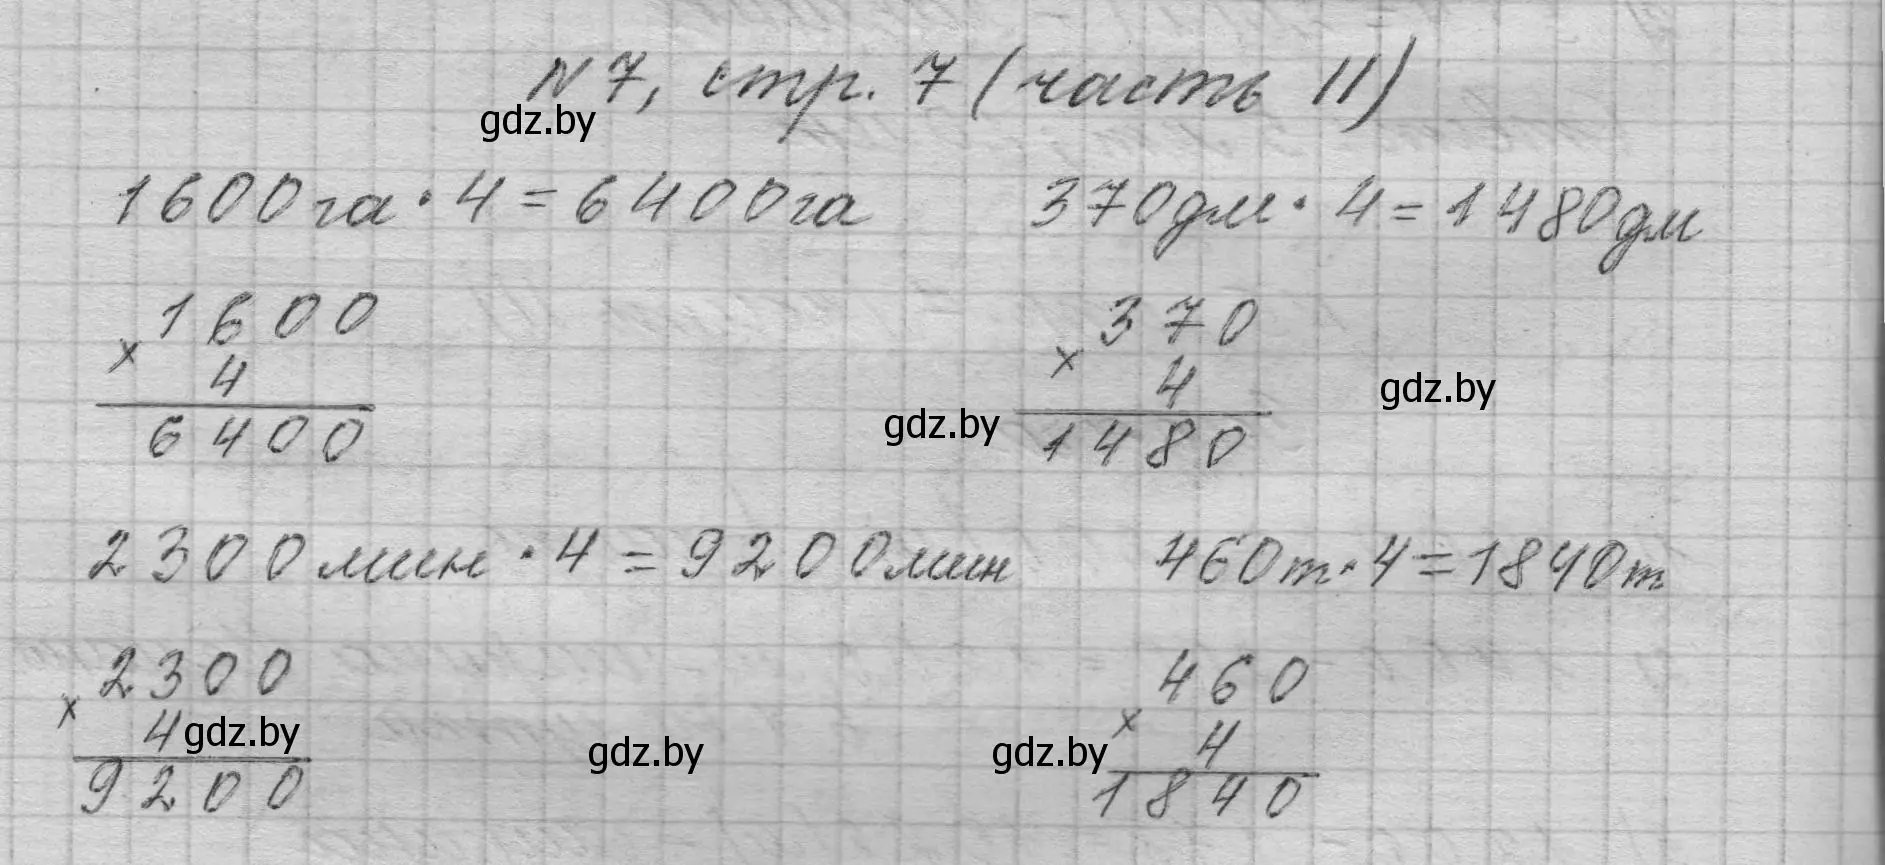 №7, стр. 7 (часть II)
gdz.by
1600га·4=6400га 370дм·4=1480дм
1600 370
× 4 × 4 gdz.by
gdz.by
6400 1480
2300мин·4=9200мин 460т·4=1840т
2300 460
× 4 gdz.by gdz.by gdz.by × 4
9200 1840